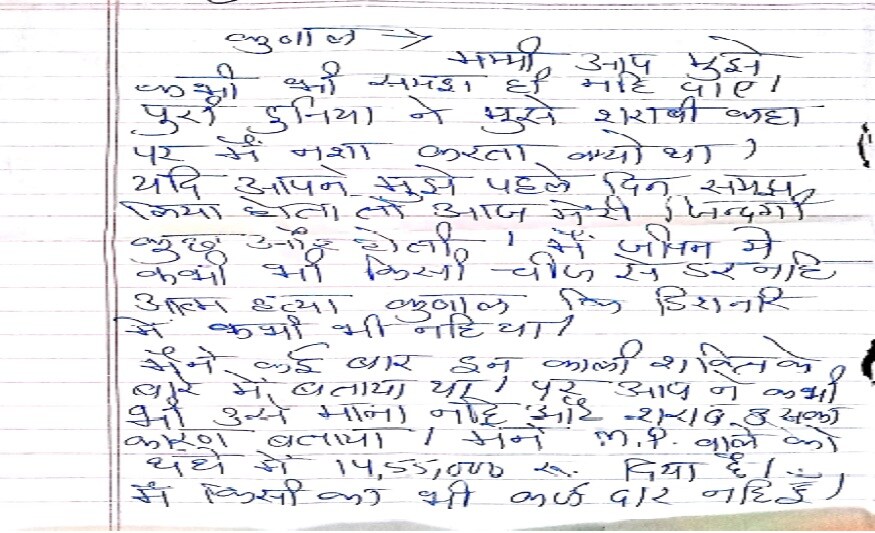 कुणाल →
मम्मी आप मुझे
कभी भी समझ ही नहि पाए।
पुरी दुनिया ने मुझे शराबी कहा
पर मैं नशा करता क्यो था)
यदि आपने मुझे पहले दिन समझ
लिया होता तो आज मेरी जिन्दगी
कुछ और होती। मैं जीवन मे
कभी भी किसी चीज से डर नहि
आत्म हत्या कुणाल कि डिशनरि
मे कभी भी नहि था।
मैंने कई बार इन काली शक्ति के
बारे में बताया था। पर आप ने कभी
भी उसे माना नहि और शराब उसका
कारण बताया। मैने M.P. वाले को
धंधे में 14,55,000 रू. दिया है।
मैं किसी का भी कर्ज दार नहि हूँ।